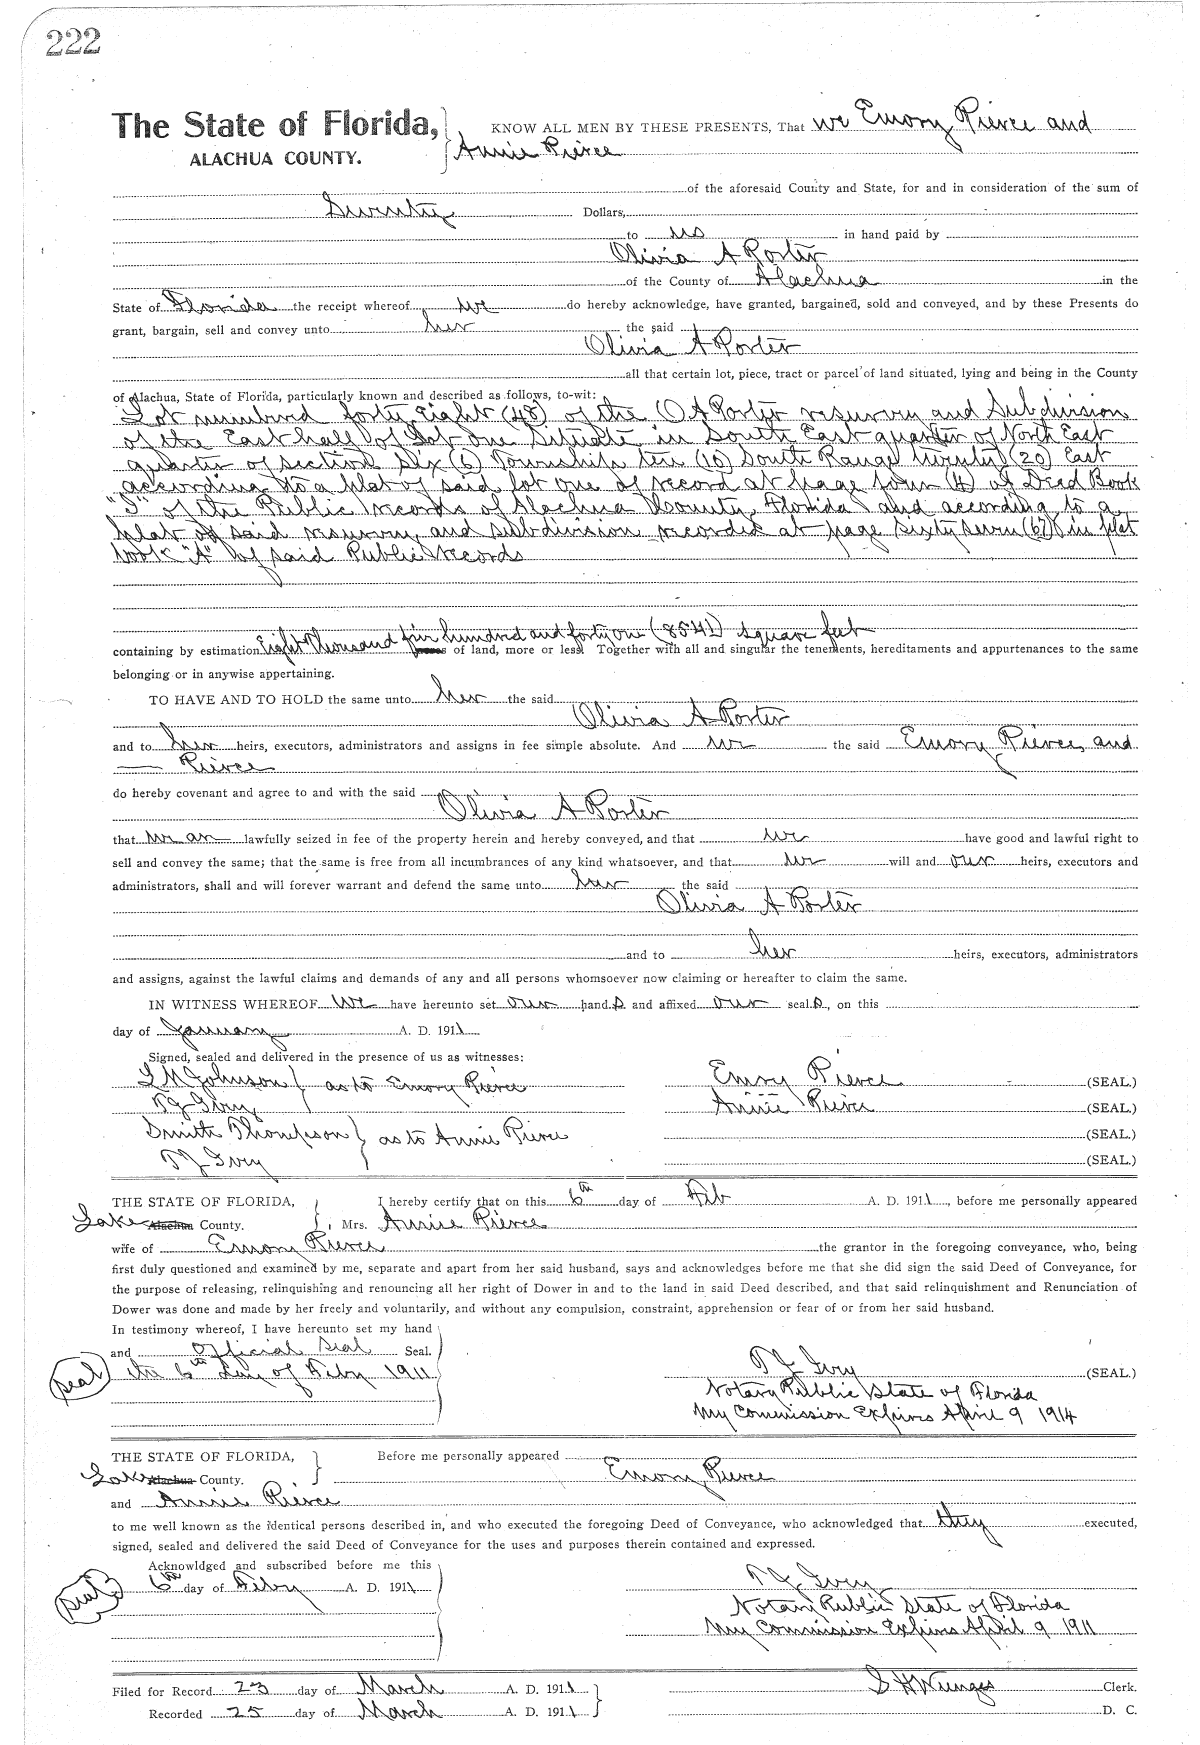 222
The State of Florida, KNOW ALL MEN BY THESE PRESENTS, That we Emory Pierce and
ALACHUA COUNTY. Annie Pierce
of the aforesaid County and State, for and in consideration of the sum of
Seventy Dollars,
to us in hand paid by
Olivia A Porter
of the County of Alachua in the
State of Florida the receipt whereof we do hereby acknowledge, have granted, bargained, sold and conveyed, and by these Presents do
grant, bargain, sell and convey unto her the said
Olivia A Porter
all that certain lot, piece, tract or parcel of land situated, lying and being in the County
of Alachua, State of Florida, particularly known and described as follows, to-wit:
Lot numbered forty Eight (48) of the O A Porter resurvey and Subdivision
of the East half of Lot One Situate in South East quarter of North East
quarter of section Six (6) Township ten (10) South Range twenty (20) East
according to a plat of said lot one of record at page four (4) of Deed Book
of the Public records of Alachua County, Florida and according to a
plat of said resurvey and subdivision recorded at page sixty seven (67) in plat
book "A" of said Public records
containing by estimation Eight Thousand five hundred and forty one (8541) square feet of land, more or less Together with all and singular the tenements, hereditaments and appurtenances to the same
belonging or in anywise appertaining.
TO HAVE AND TO HOLD the same unto her the said
Olivia A Porter
and to her heirs, executors, administrators and assigns in fee simple absolute. And we the said Emory Pierce, and
—— Pierce
do hereby covenant and agree to and with the said
Olivia A Porter
that we are lawfully seized in fee of the property herein and hereby conveyed, and that we have good and lawful right to
sell and convey the same; that the same is free from all incumbrances of any kind whatsoever, and that we will and our heirs, executors and
administrators, shall and will forever warrant and defend the same unto her the said
Olivia A Porter
and to her heirs, executors, administrators
and assigns, against the lawful claims and demands of any and all persons whomsoever now claiming or hereafter to claim the same.
IN WITNESS WHEREOF We have hereunto set our hands and affixed our seals, on this
day of January A. D. 1911
Signed, sealed and delivered in the presence of us as witnesses:
L M Johnson } as to Emory Pierce Emory Pierce (SEAL.)
T J Ivey Annie Pierce (SEAL.)
Smith Thompson } as to Annie Pierce (SEAL.)
T J Ivey (SEAL.)
THE STATE OF FLORIDA, I hereby certify that on this 6th day of Feb A. D. 1911, before me personally appeared
Lake Alachua County. Mrs. Annie Pierce
wife of Emory Pierce the grantor in the foregoing conveyance, who, being
first duly questioned and examined by me, separate and apart from her said husband, says and acknowledges before me that she did sign the said Deed of Conveyance, for
the purpose of releasing, relinquishing and renouncing all her right of Dower in and to the land in said Deed described, and that said relinquishment and Renunciation of
Dower was done and made by her freely and voluntarily, and without any compulsion, constraint, apprehension or fear of or from her said husband.
In testimony whereof, I have hereunto set my hand
and Official Seal Seal.
seal the 6th Day of Feby 1911 T J Ivey (SEAL.)
Notary Public State of Florida
My Commission Expires April 9 1914
THE STATE OF FLORIDA, Before me personally appeared
Lake Alachua County. Emory Pierce
and Annie Pierce
to me well known as the identical persons described in, and who executed the foregoing Deed of Conveyance, who acknowledged that they executed,
signed, sealed and delivered the said Deed of Conveyance for the uses and purposes therein contained and expressed.
Acknowldged and subscribed before me this
seal 6th day of Feby A. D. 1911 T J Ivey
Notary Public State of Florida
My Commission Expires April 9 1911
Filed for Record 23 day of March A. D. 1911 S H Wienges Clerk.
Recorded 25 day of March A. D. 1911 D. C.